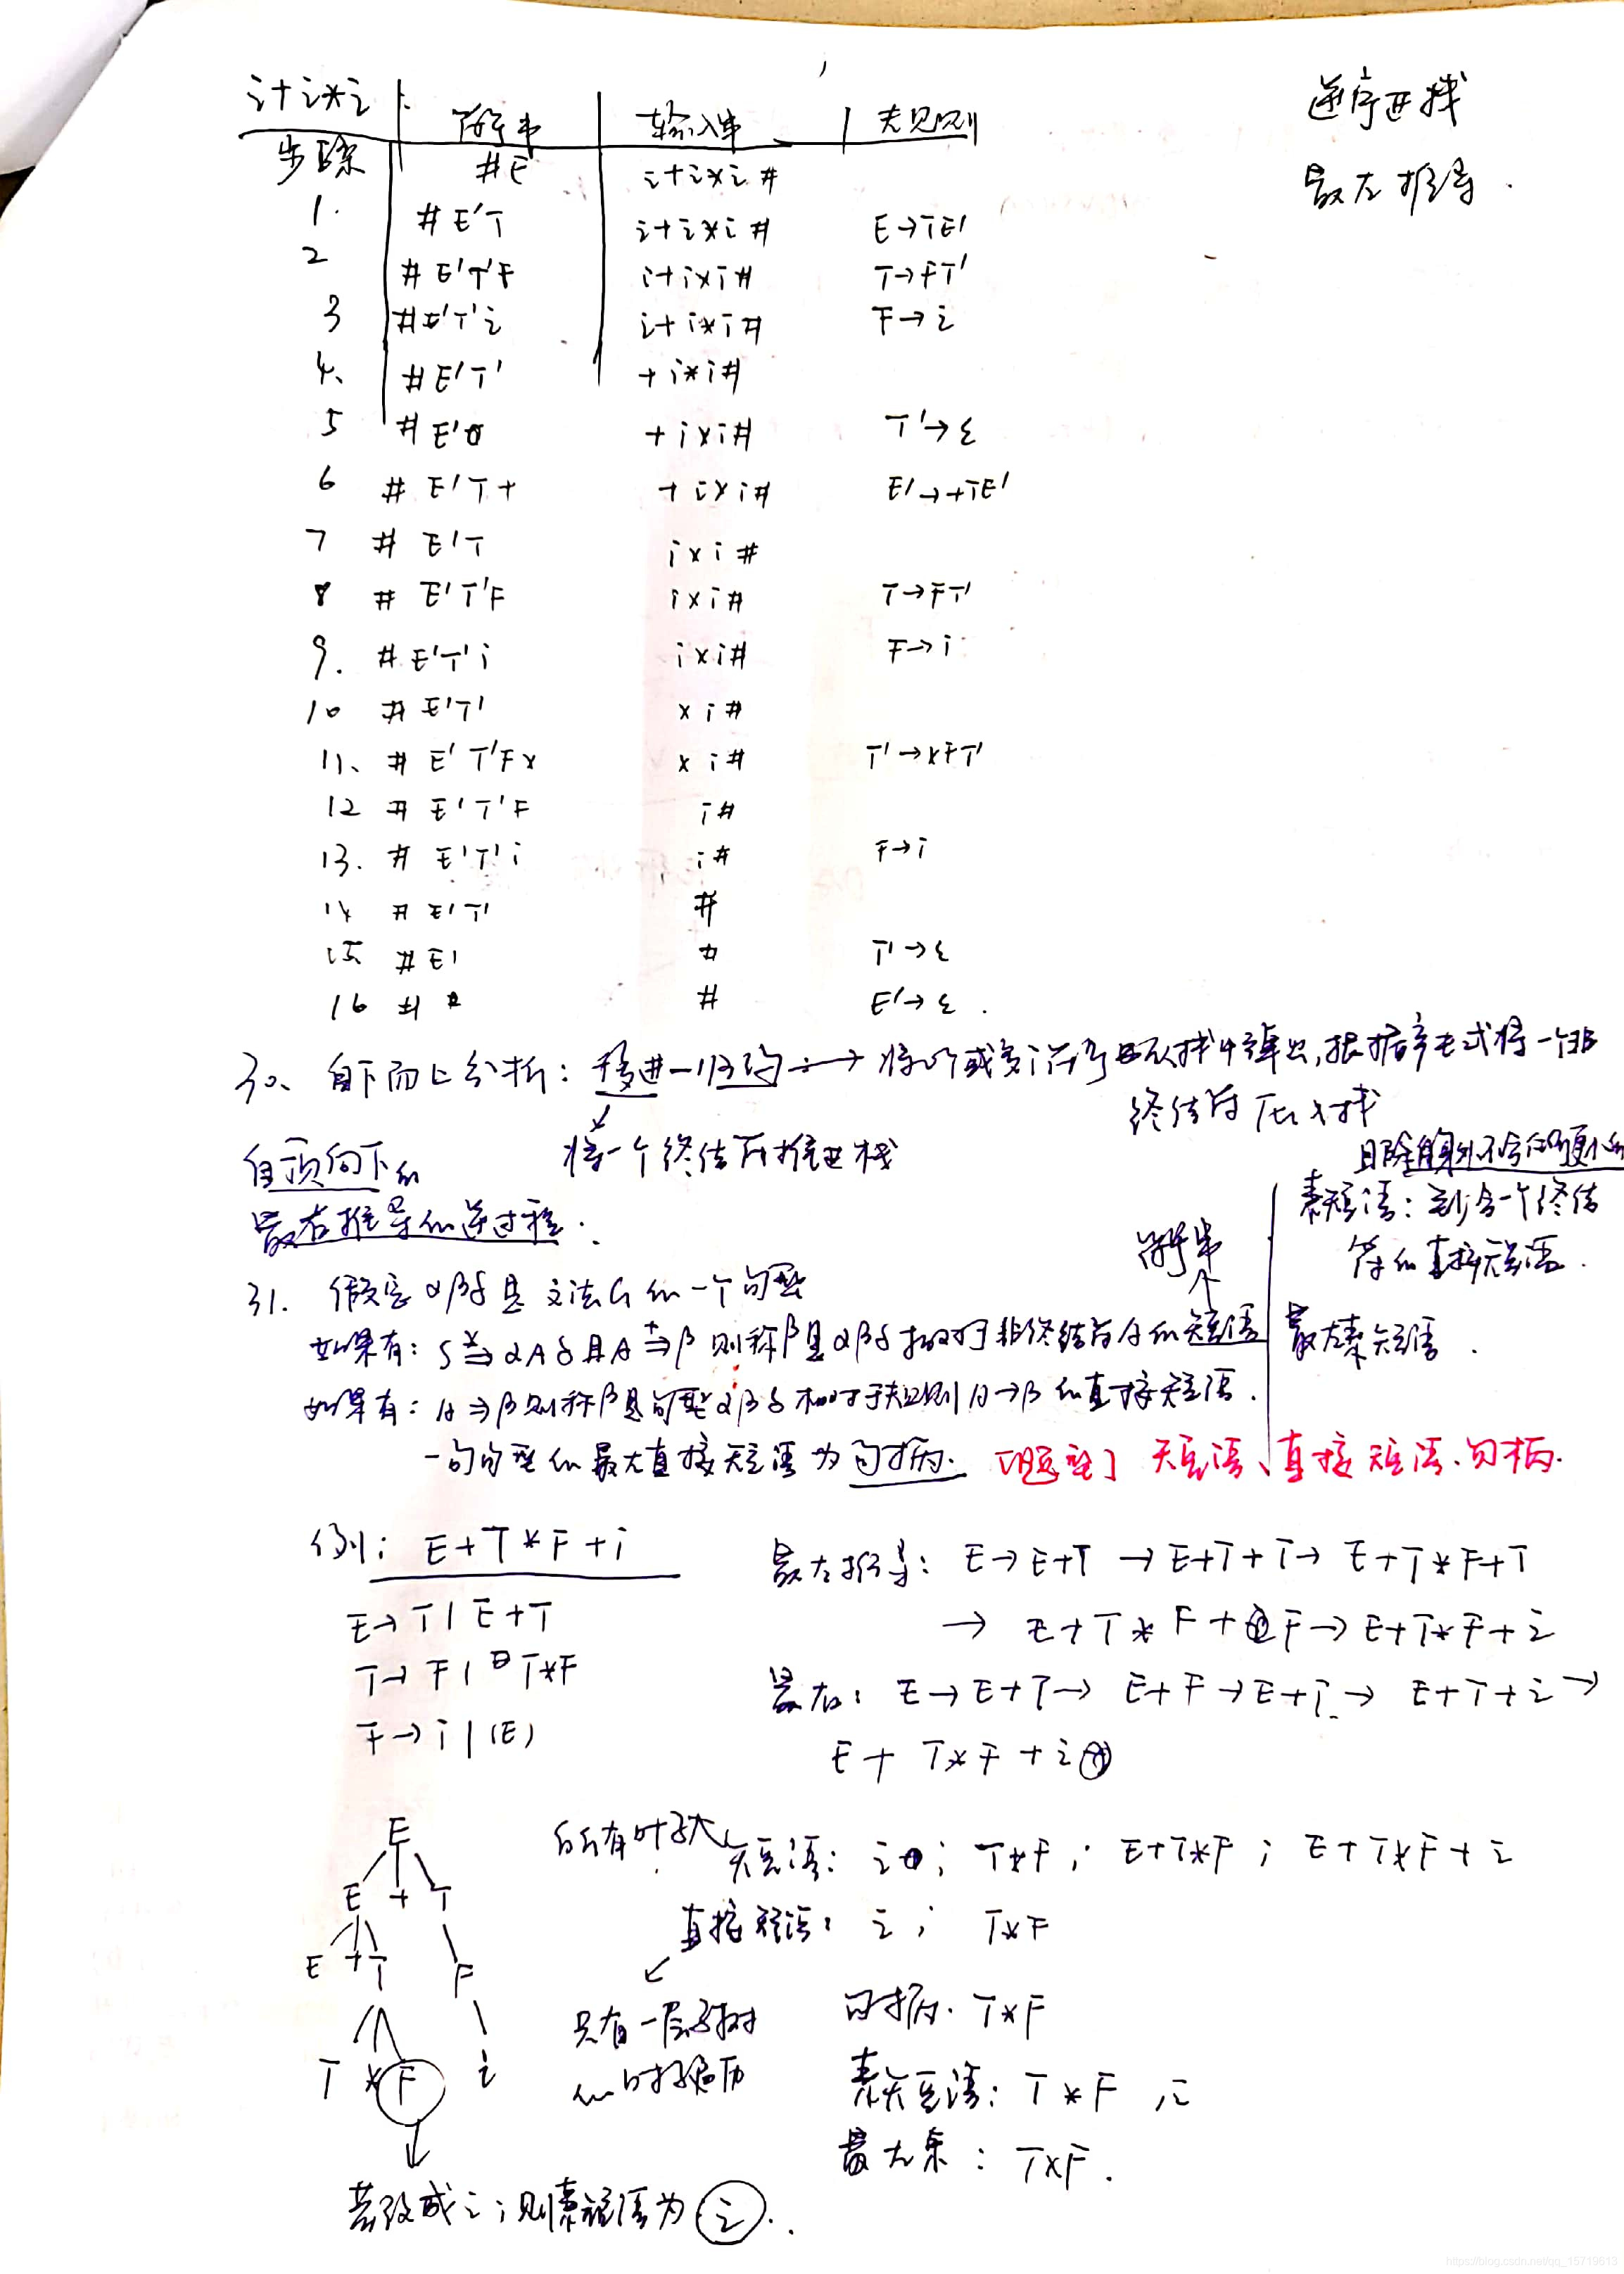 i+i*i
步骤 符号串 输入串 规则
#E i+i*i#
1. #E'T i+i*i# E→TE'
2 #E'T'F i+i*i# T→FT'
3 #E'T'i i+i*i# F→i
4、 #E'T' +i*i#
5 #E' +i*i# T'→ε
6 #E'T+ +i*i# E'→+TE'
7 #E'T i*i#
8 #E'T'F i*i# T→FT'
9. #E'T'i i*i# F→i
10 #E'T' *i#
11、 #E'T'F* *i# T'→*FT'
12 #E'T'F i#
13. #E'T'i i# F→i
14 #E'T' #
15 #E' # T'→ε
16 # # E'→ε.
逆序进栈
最左推导.
30、自下而上分析：移进-归约→将1个或多个符号从栈中弹出，根据产生式将一个非
终结符压入栈
将一个终结符推进栈
自顶向下的
最右推导的逆过程.
且除自身外不含更小的
素短语：至少含一个终结
符的直接短语.
最左素短语.
符号串
31. 假定αβδ是文法G的一个句型
如果有：S*⇒αAδ且A+⇒β则称β是αβδ相对于非终结符A的短语
如果有：A⇒β则称β是句型αβδ相对于规则A→β的直接短语.
一句句型的最左直接短语为句柄. [题型] 短语、直接短语、句柄.
例：E+T*F+i
E→T|E+T
T→F|T*F
F→i|(E)
最左推导：E→E+T→E+T+T→E+T*F+T
→E+T*F+F→E+T*F+i
最右：E→E+T→E+F→E+i→E+T+i→
E+T*F+i
E
E + T
E + T F
T * F i
若改成i；则素短语为i.
所有叶子
短语：i；T*F；E+T*F；E+T*F+i
直接短语：i；T*F
只有一层子树
的叶子遍历
句柄.T*F
素短语：T*F，i
最左素：T*F.
https://blog.csdn.net/qq_15719613